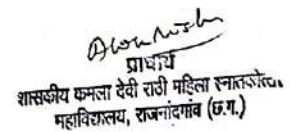 प्राचार्य
शासकीय कमला देवी राठी महिला स्नातकोत्त.
महाविद्यालय, राजनांदगांव (छ.ग.)